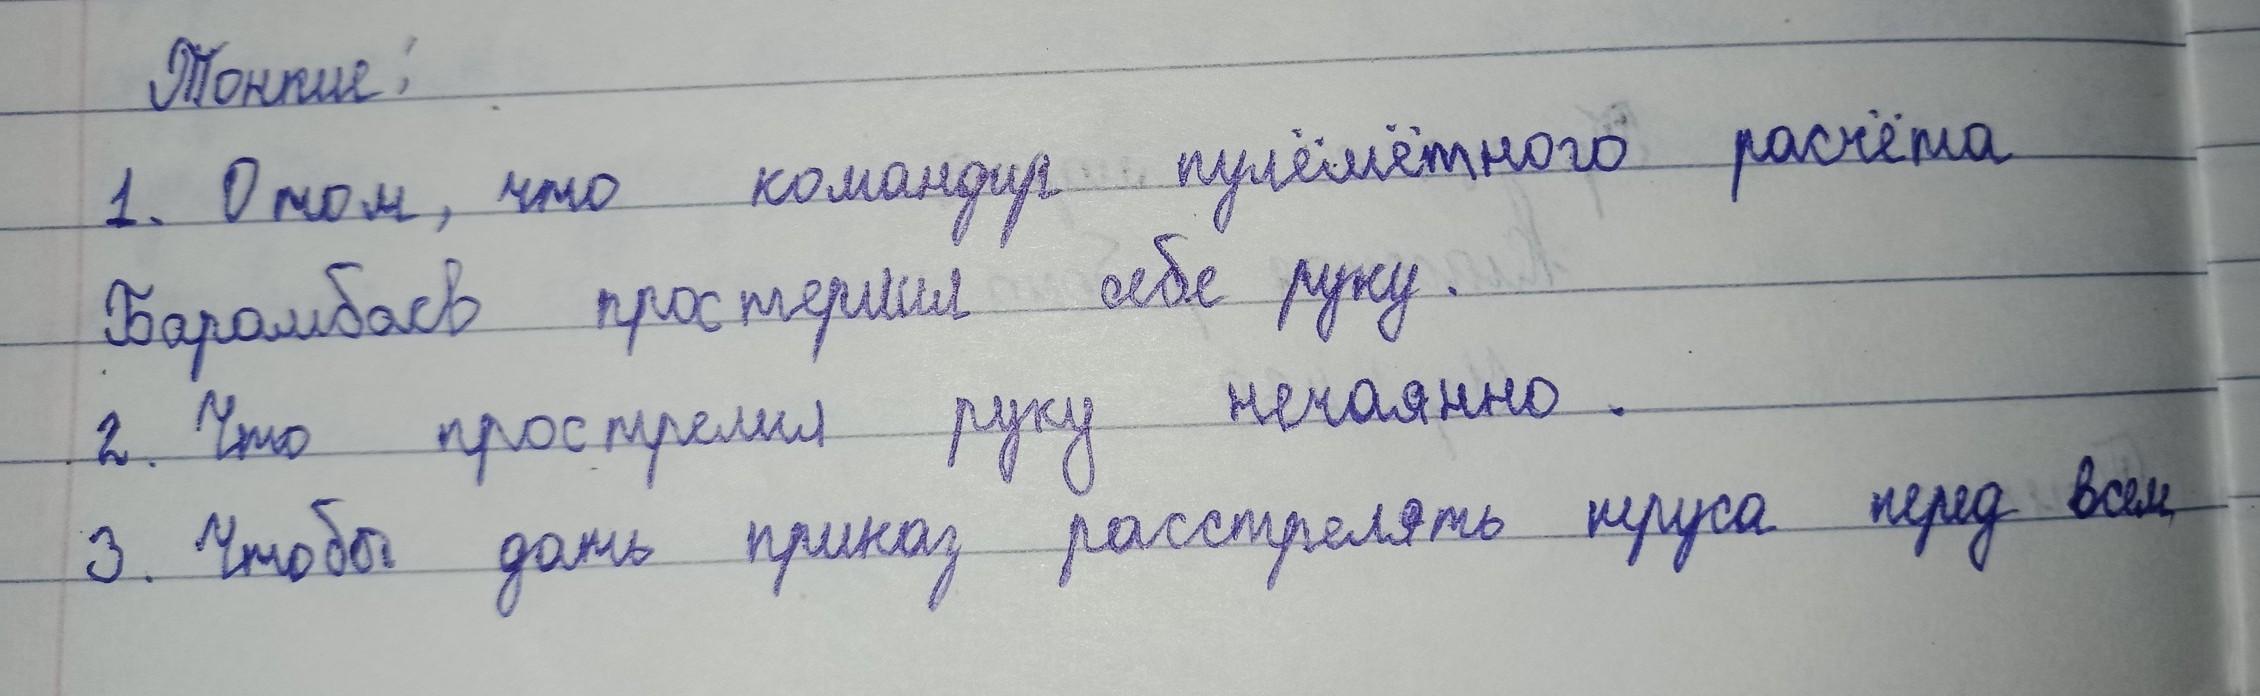 Тонкие:
1. О том, что командир пулёмётного расчёта
Барамбаев простермил себе руку.
2. Что прострелил руку нечаянно.
3. Чтобы дать приказ расстрелять труса перед всем